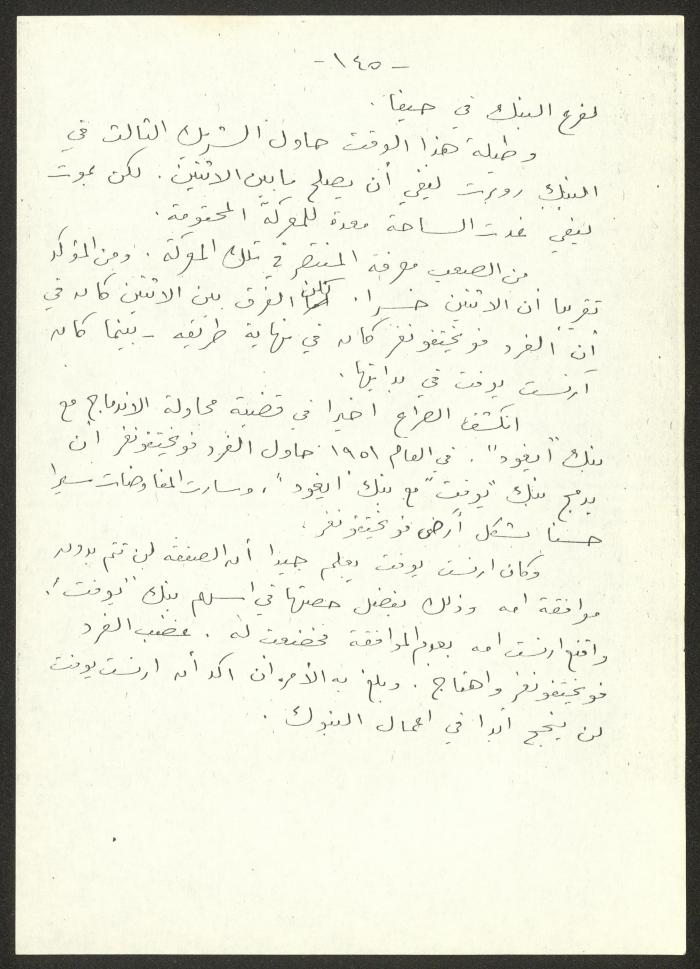 - ١٤٥ -
لفرع البنك في حيفا .
وطيلة هذا الوقت حاول الشريك الثالث في
البنك روبرت ليفي أن يصلح ما بين الاثنين . لكن بموت
ليفي غدت الساحة معدة للمعركة المحتومة .
من الصعب معرفة المنتصر في تلك المعركة . ومن المؤكد
تقريبا أن الاثنين خسرا . لكن الفرق بين الاثنين كان في
أن الفرد فويختفونغر كان في نهاية طريقه - بينما كان
ارنست يوفت في بدايتها .
انكشف الصراع اخيرا في قضية محاولة الاندماج مع
بنك "ايغود" . في العام ١٩٥١ حاول الفرد فويختفونغر أن
يدمج بنك "يوفت" مع بنك "ايغود" ، وسارت المفاوضات سيرا
حسنا بشكل أرضى فويختفونغر .
وكان ارنست يوفت يعلم جيدا أن الصفقة لن تتم بدون
موافقة امه وذلك بفضل حصتها في اسهم بنك "يوفت" .
واقنع ارنست امه بعدم الموافقة فخضعت له . غضب الفرد
فويختفونغر واهتاج . وبلغ به الأمر ان اكد أن ارنست يوفت
لن ينجح أبدا في اعمال البنوك .